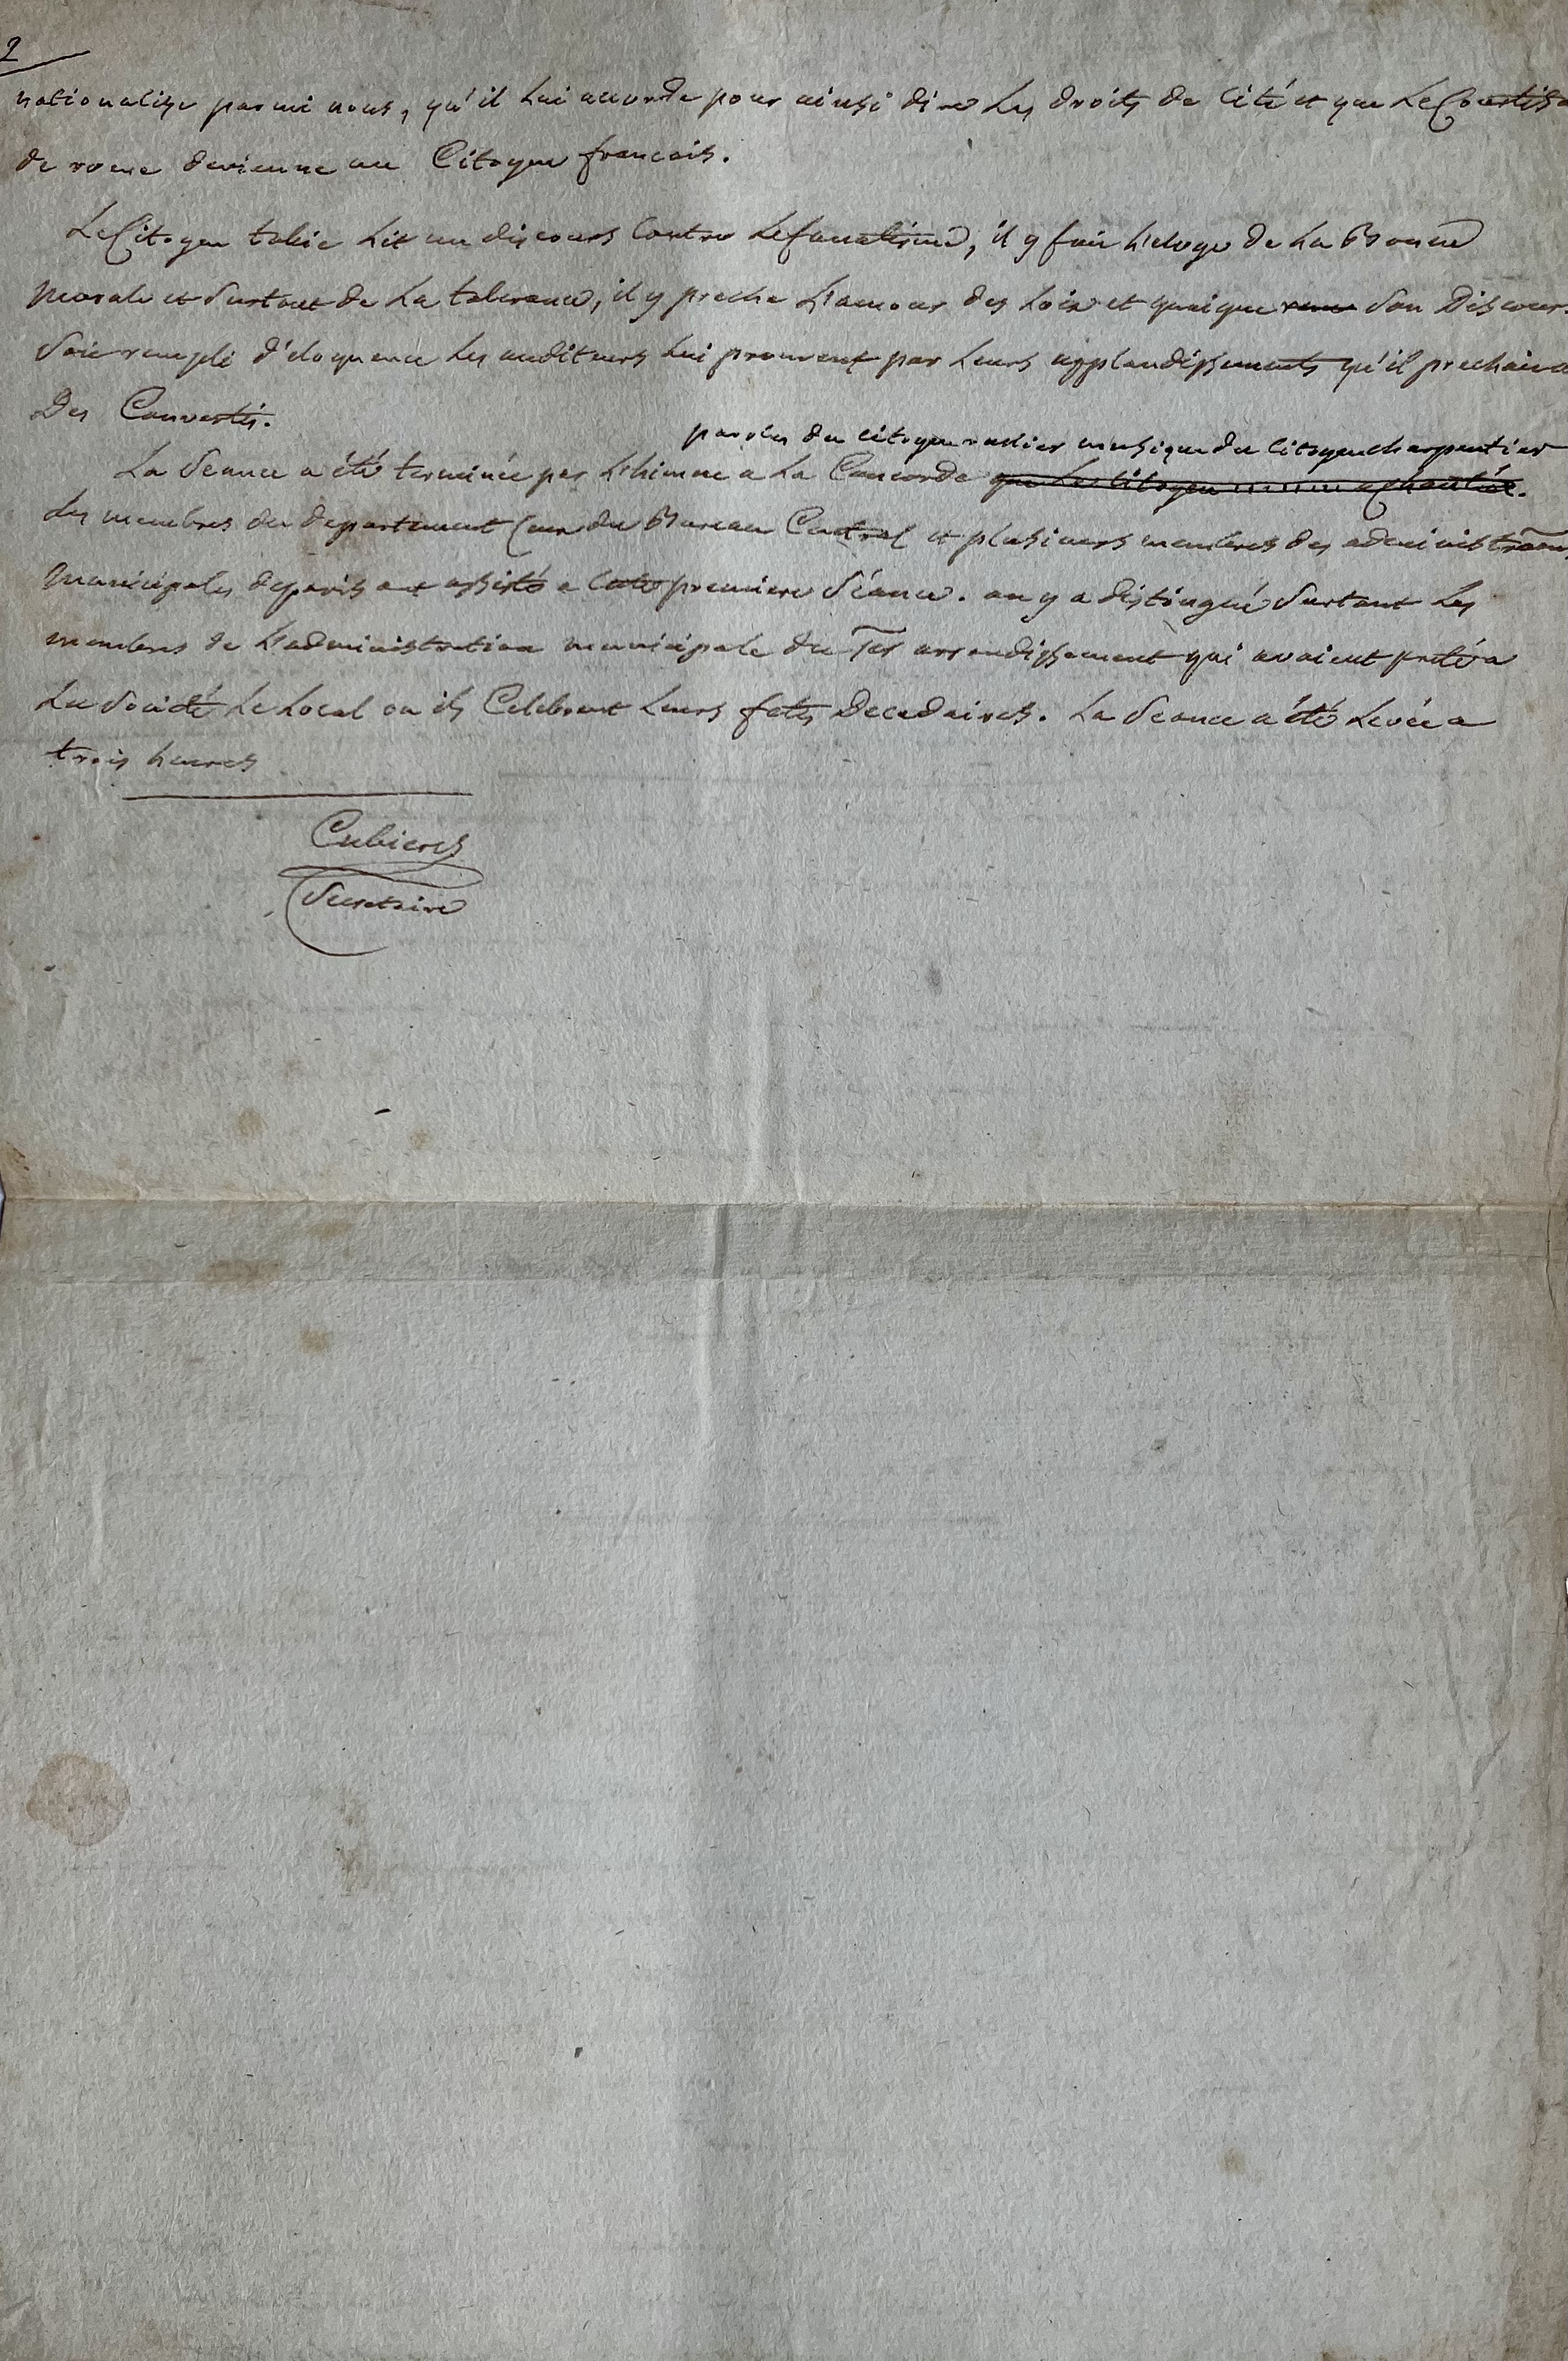 2
nationalise parmi nous, qu'il lui accorde pour ainsi dire les droits de Cité et que Le Courtisa
de rome devienne un Citoyen francois.
Le Citoyen lit un discours Contre Le fanatisme, il y fait L'eloge de La Bonne
Morale et Surtout de La tolerance, il y preche L'amour des Loix et quoique son Discours
Soit rempli d'eloquence Les auditeurs Lui prouvent par Leurs applaudissements qu'il prechait a
Des Convertis.
paroles du citoyen musique du Citoyen charpentier
La Seance a été terminée par L'himne a La Concorde que Le Citoyen a chantée.
des membres du departement Ceux du Bureau Central et plusieurs membres des administraons
Municipales de paris ont assisté a Cette premiere Séance. on y a distingué Surtout Les
membres de L'administration municipale du 1er arrondissement qui avaient preté a
La Société Le Local ou ils Celebrent Leurs fetes Decadaires. La Seance a été Levée a
trois heures
Cubieres
Secretaire